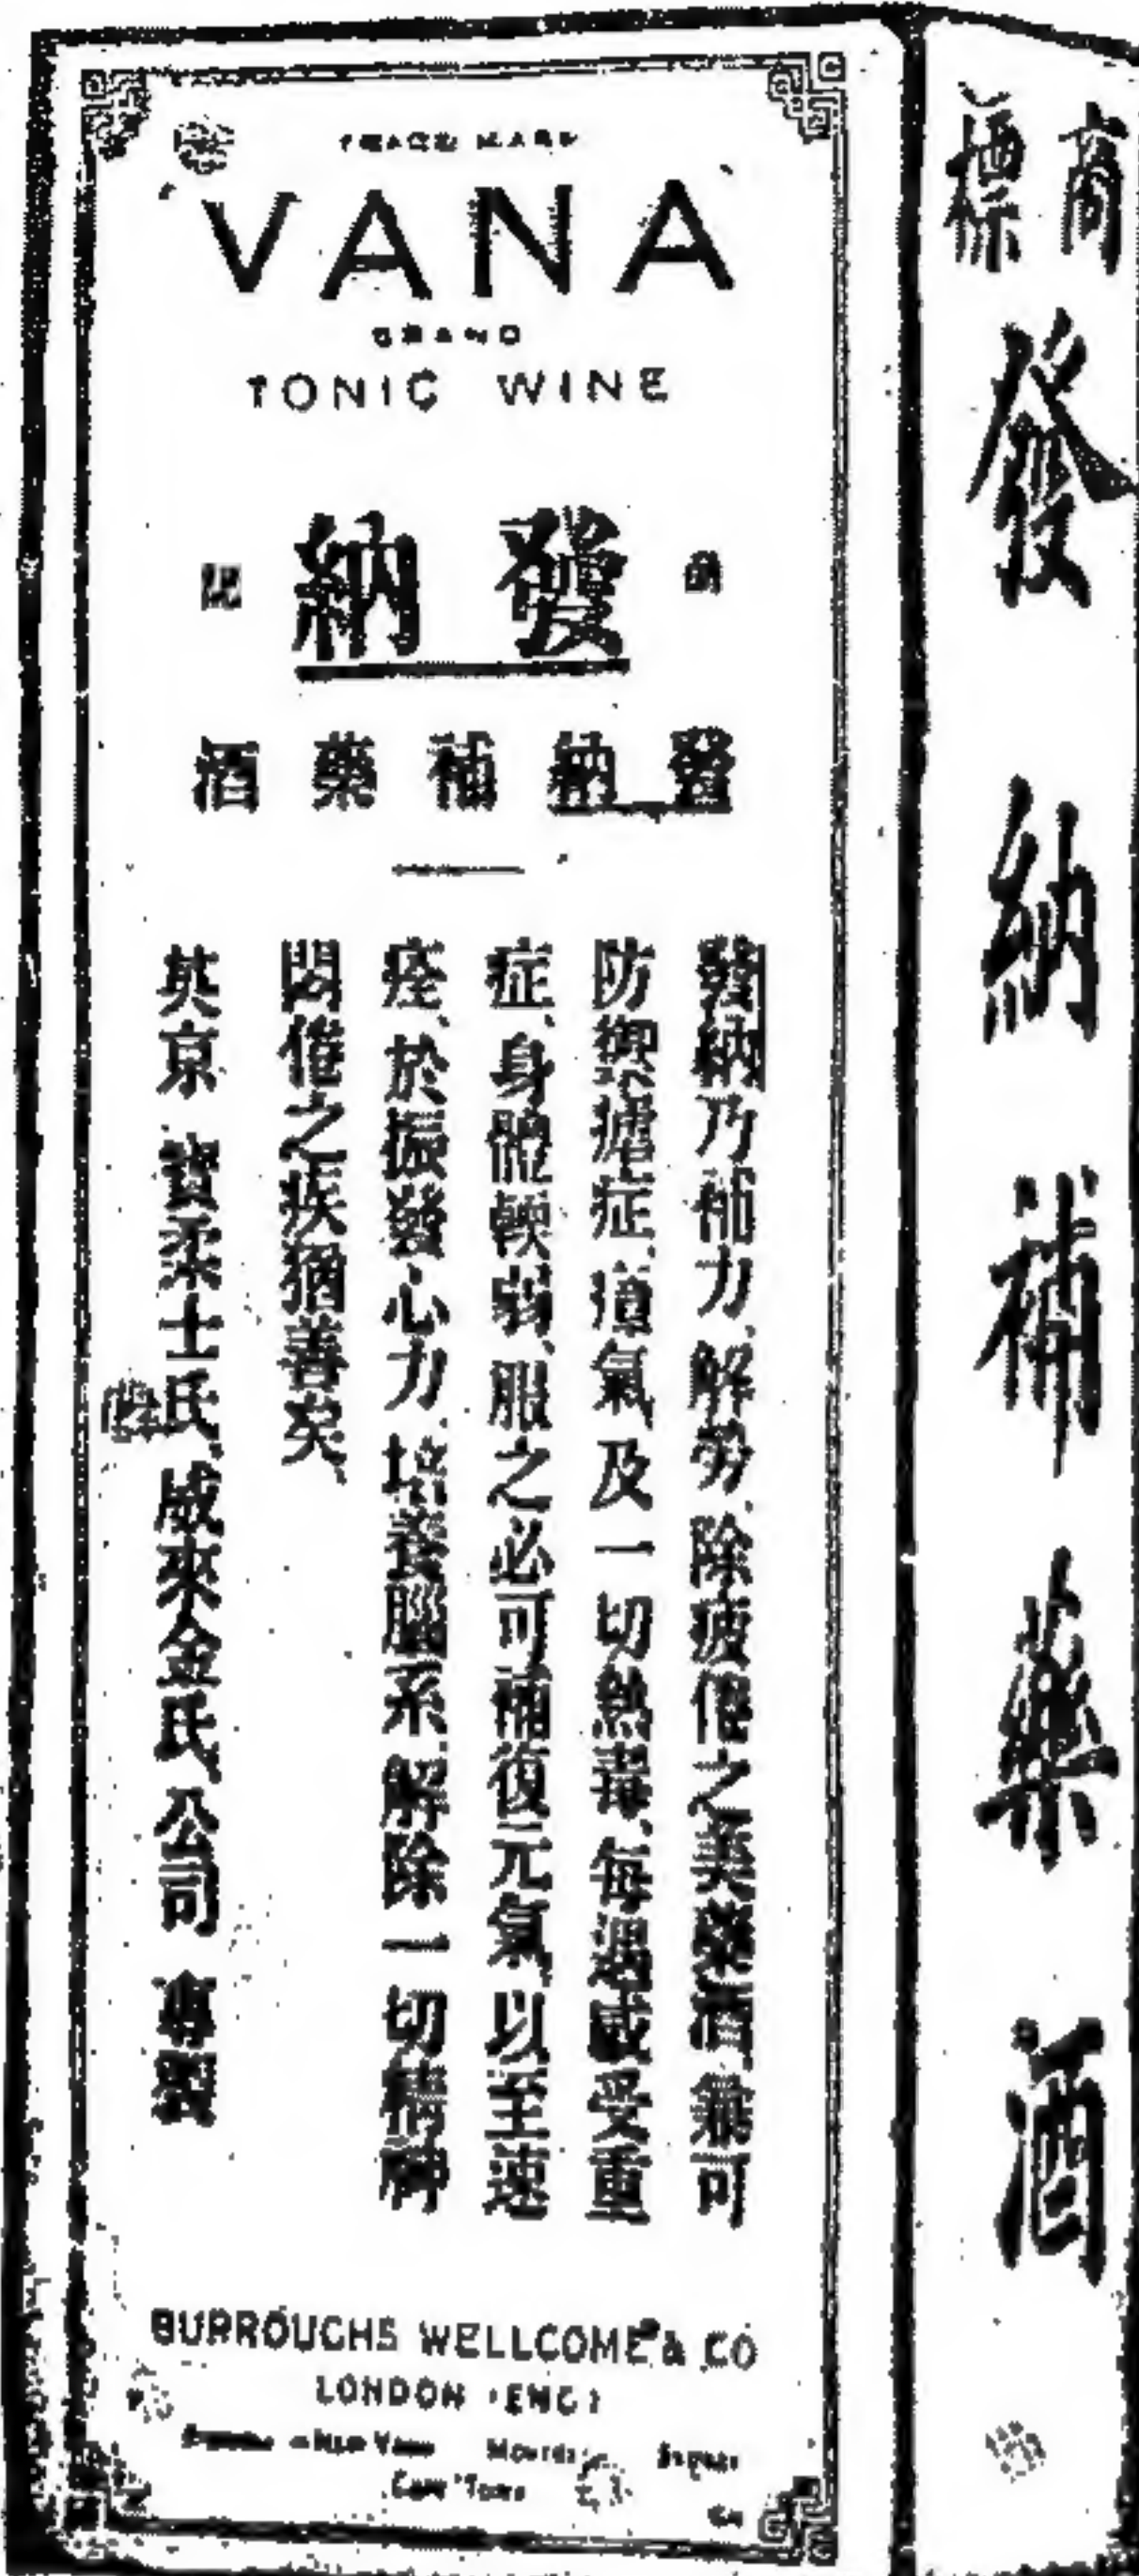 TRADE MARK
VANA
BRAND
TONIC WINE
發納
發納補藥酒
發納乃補力、解勞、除疲倦之美藥酒兼可
防禦瘧症、瘴氣及一切熱毒、每遇感受重
症、身體軟弱、服之必可補復元氣以至速
痊、於振發心力、培養腦系、解除一切精神
悶倦之疾猶善矣、
英京 寶柔士氏、威來金氏、公司 專製
BURROUGHS WELLCOME & CO
LONDON (ENG)
New York Montreal Sydney
Cape Town
商標
發納補藥酒